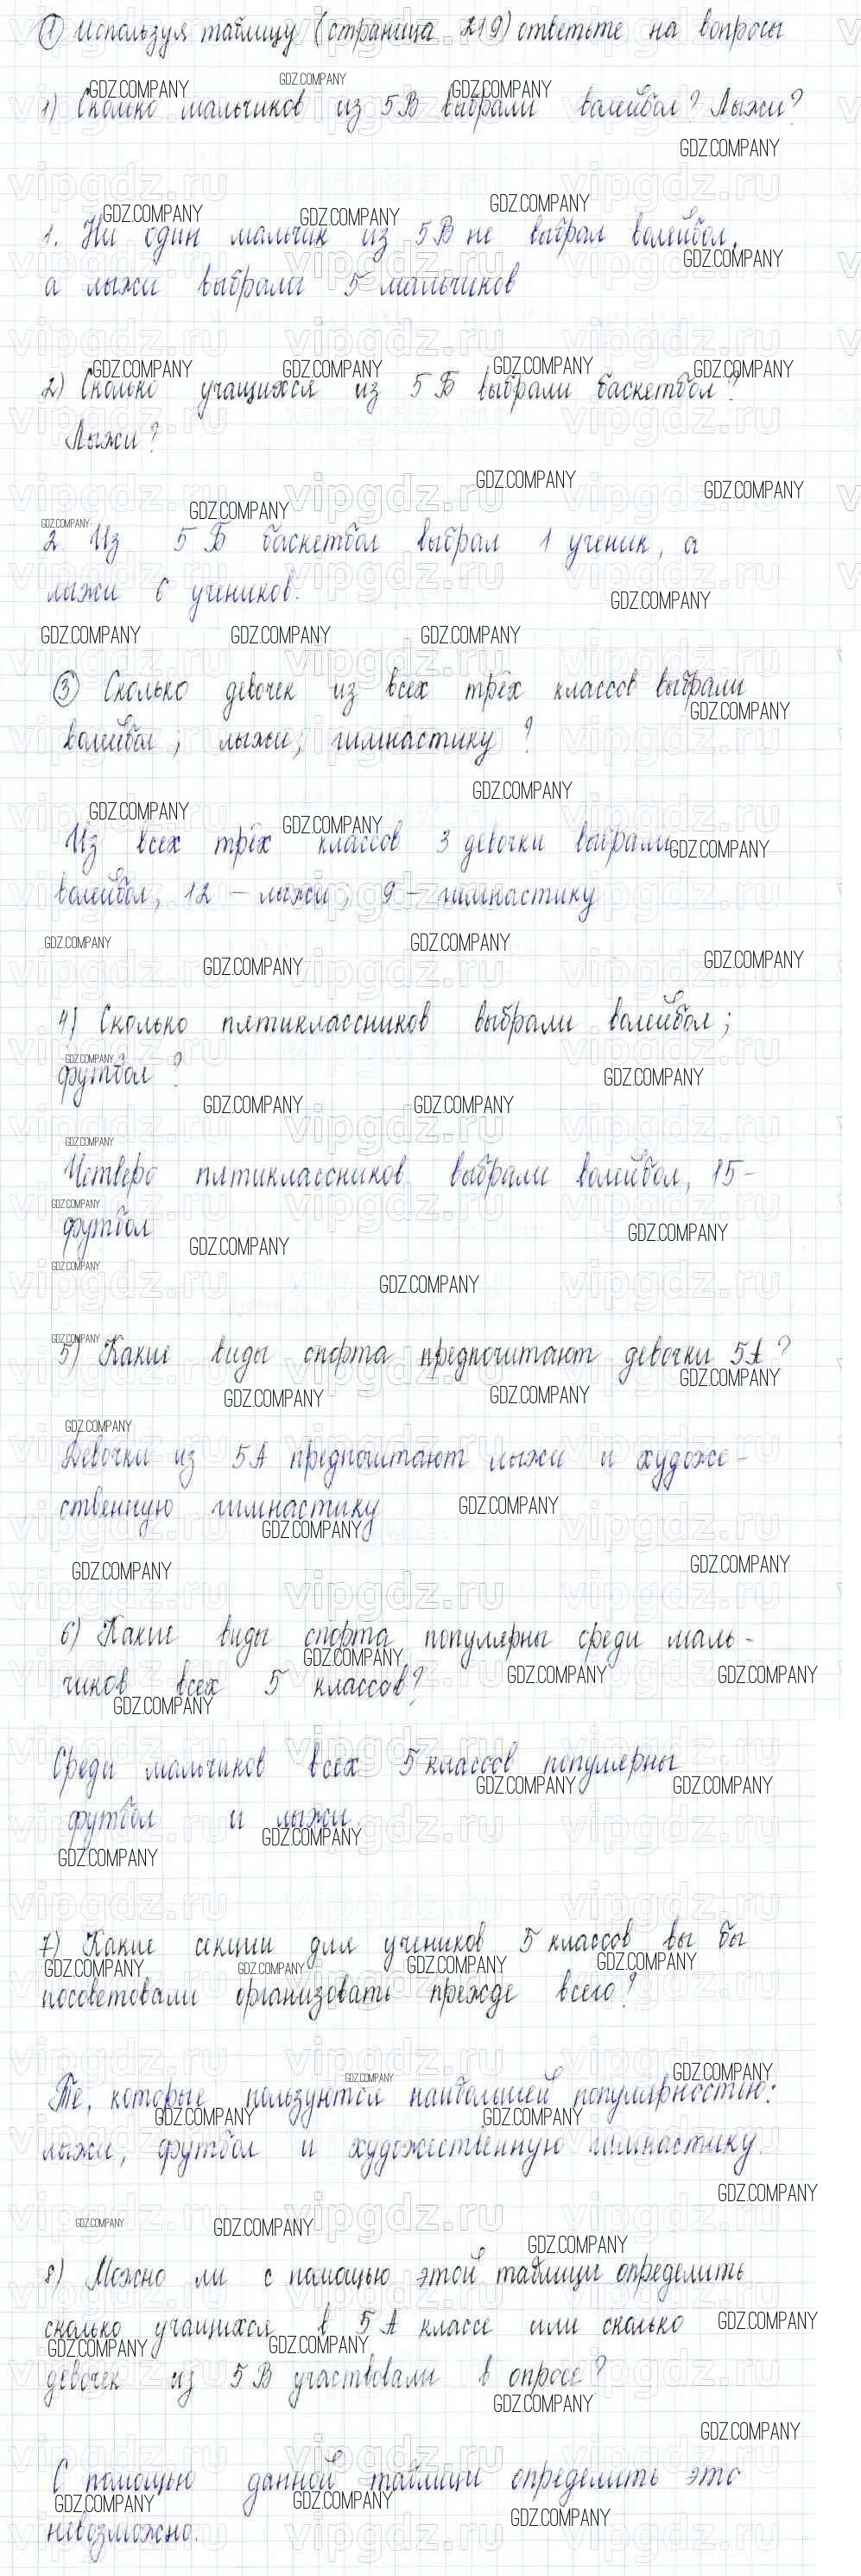 ① Используя таблицу (страница 219) ответьте на вопросы
1) Сколько мальчиков из 5В выбрали волейбол? Лыжи?
1. Ни один мальчик из 5В не выбрал волейбол,
а лыжи выбрали 5 мальчиков
2) Сколько учащихся из 5Б выбрали баскетбол?
Лыжи?
2. Из 5Б баскетбол выбрал 1 ученик, а
лыжи 6 учеников.
③ Сколько девочек из всех трёх классов выбрали
волейбол; лыжи; гимнастику?
Из всех трёх классов 3 девочки выбрали
волейбол, 12 – лыжи, 9 – гимнастику
4) Сколько пятиклассников выбрали волейбол;
футбол?
Четверо пятиклассников выбрали волейбол, 15 –
футбол
5) Какие виды спорта предпочитают девочки 5А?
Девочки из 5А предпочитают лыжи и художе-
ственную гимнастику
6) Какие виды спорта популярны среди маль-
чиков всех 5 классов?
Среди мальчиков всех 5 классов популярны
футбол и лыжи
7) Какие секции для учеников 5 классов вы бы
посоветовали организовать прежде всего?
Те, которые пользуются наибольшей популярностью:
лыжи, футбол и художественную гимнастику.
8) Можно ли с помощью этой таблицы определить
сколько учащихся в 5А классе или сколько
девочек из 5В участвовали в опросе?
С помощью данной таблицы определить это
невозможно.